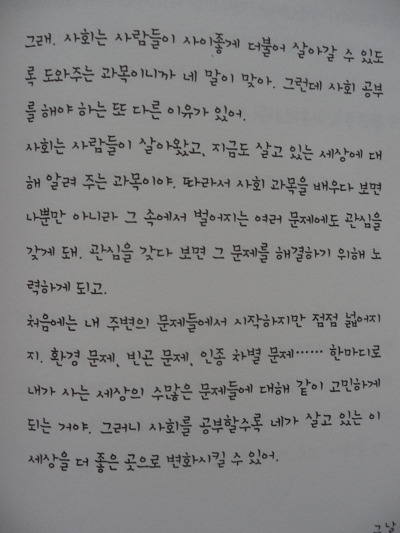 그래. 사회는 사람들이 사이좋게 더불어 살아갈 수 있도
록 도와주는 과목이니까 네 말이 맞아. 그런데 사회 공부
를 해야 하는 또 다른 이유가 있어.
사회는 사람들이 살아왔고, 지금도 살고 있는 세상에 대
해 알려 주는 과목이야. 따라서 사회 과목을 배우다 보면
나뿐만 아니라 그 속에서 벌어지는 여러 문제에도 관심을
갖게 돼. 관심을 갖다 보면 그 문제를 해결하기 위해 노
력하게 되고.
처음에는 내 주변의 문제들에서 시작하지만 점점 넓어지
지. 환경 문제, 빈곤 문제, 인종 차별 문제…… 한마디로
내가 사는 세상의 수많은 문제들에 대해 같이 고민하게
되는 거야. 그러니 사회를 공부할수록 네가 살고 있는 이
세상을 더 좋은 곳으로 변화시킬 수 있어.
그날